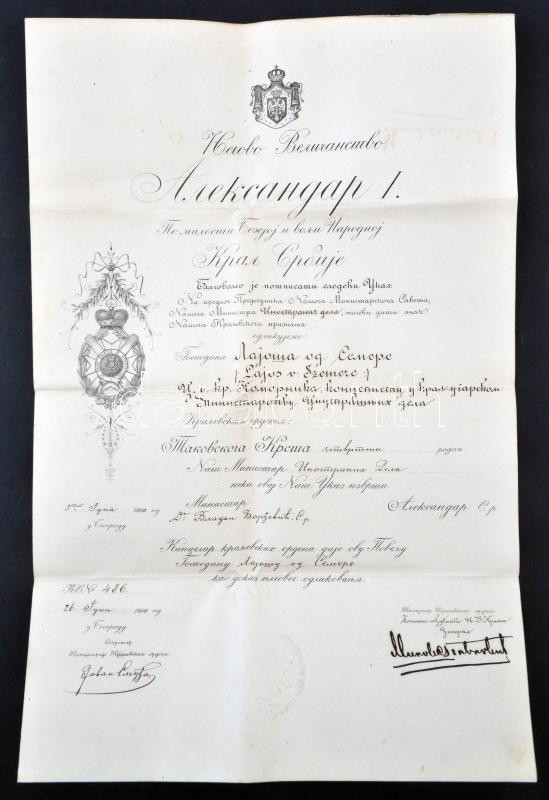 Његово Величанство
Александар I.
По милости Божјој и вољи Народној
Краљ Србије
Благоволео је потписати следећи Указ:
На предлог Председника Нашега Министарског Савета,
Нашега Министра Иностраних дела, хотећи дати знак
Нашега Краљевског признања
одликујемо:
Господина Лајоша од Семере
(Lajos v. Szemere)
Ц. и кр. Коморника, у крал. угарском
Министарству Унутрашњих дела
Краљевским орденом:
Таковскога Крста четвртога реда
Наш Министар Иностраних Дела
нека овај Наш Указ изврши
1900 год
у Београду
Министар
Др. Владан Ђорђевић, с.р.
Александар С.р.
Канцелар краљевских ордена даје ову Повељу
Господину Лајошу од Семере
као доказ његовог одликовања.
К.О.№ 486.
26 Јуни 1900 год
у Београду
Секретар
Канцеларије Краљевских ордена
Јован
Канцелар Краљевских ордена
Њ. В. Краља
Ђенерал